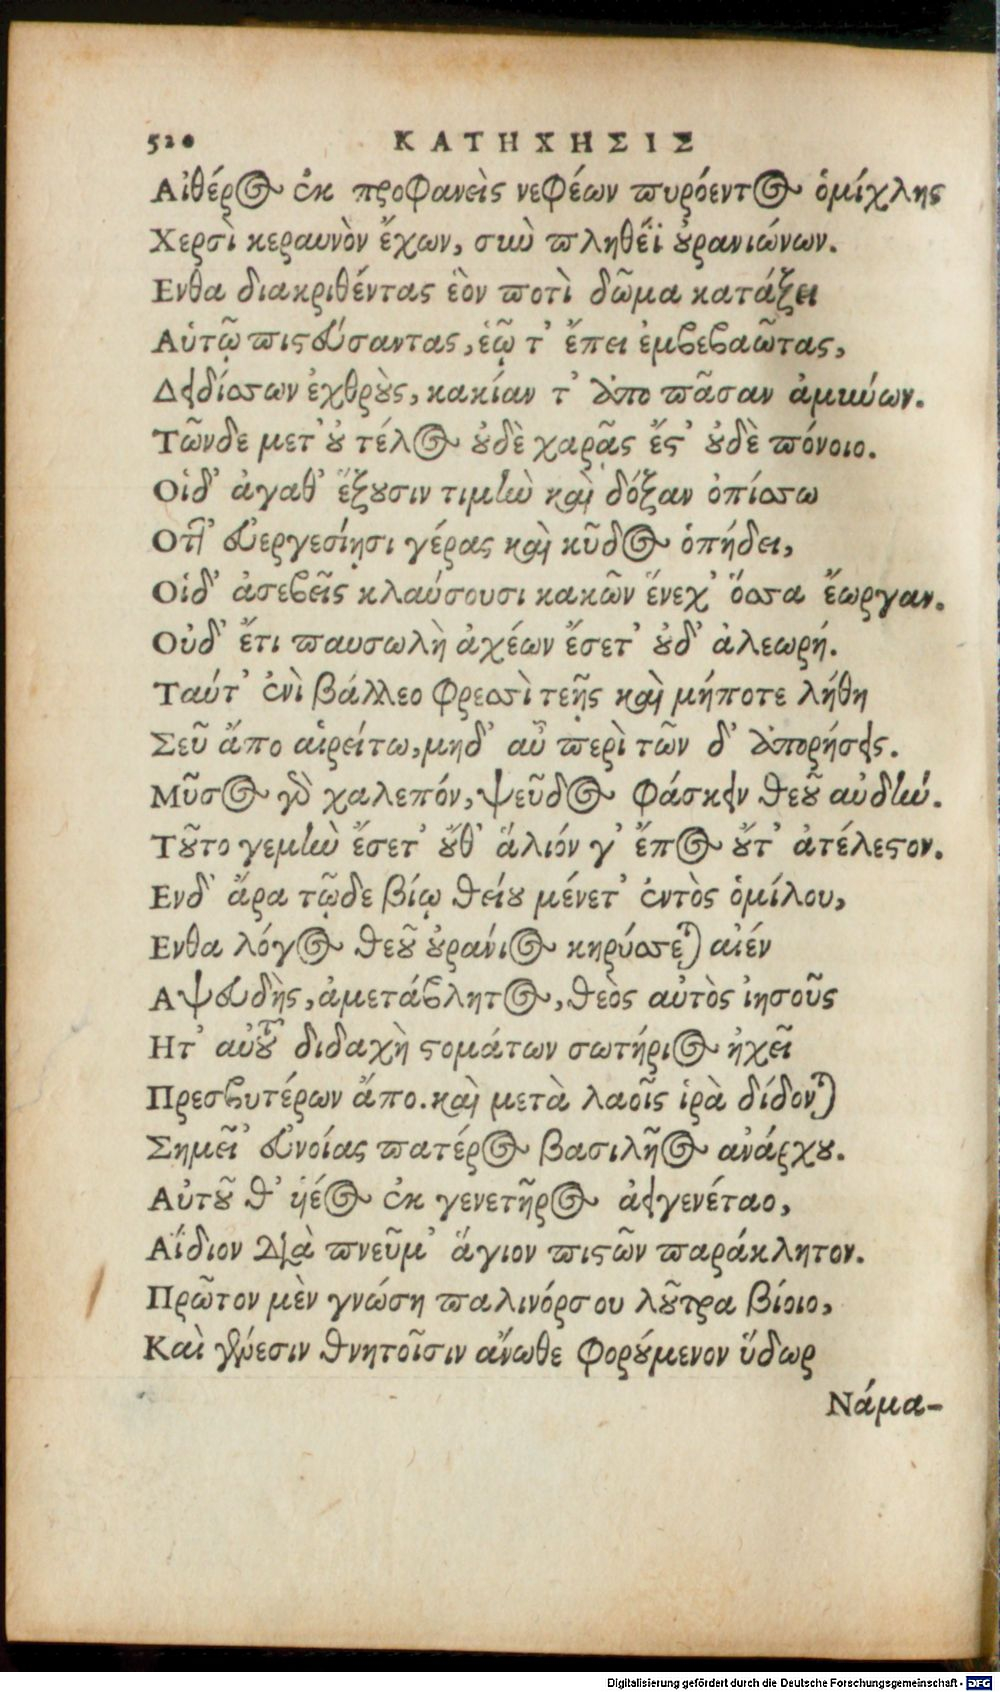 520 ΚΑΤΗΧΗΣΙΣ
Αἰθέρος ἐκ προφανεὶς νεφέων πυρόεντος ὁμίχλης
Χερσὶ κεραυνὸν ἔχων, σιωὺ πληθέϊ οὐρανιώνων.
Ενθα διακριθέντας ἑὸν ποτὶ δῶμα κατάξει
Αὑτῷ πιστεύσαντας, ἑῷ τ' ἔπει ἐμβεβαῶτας,
Δειδίσσων ἐχθροὺς, κακίαν τ' ἀπο πᾶσαν ἀμύνων.
Τῶνδε μετ' οὐ τέλος οὐδὲ χαρᾶς ἔς' οὐδὲ πόνοιο.
Οἱδ' ἀγαθ' ἕξουσιν τιμὴν καὶ δόξαν ὀπίσσω
Οτι' εὐεργεσίῃσι γέρας καὶ κῦδος ὀπήδει,
Οἱδ' ἀσεβεῖς κλαύσουσι κακῶν ἕνεχ' ὅσσα ἔωργαν.
Οὐδ' ἔτι παυσωλὴ ἀχέων ἔσετ' οὐδ' ἀλεωρή.
Ταύτ' ἐνὶ βάλλεο φρεσὶ τεῇς καὶ μήποτε λήθη
Σεῦ ἄπο αἱρείτω, μηδ' αὖ περὶ τῶν δ' ἀπορήσεις.
Μῦσος γὸ χαλεπόν, ψεῦδος φάσκειν θεοῦ αὐδήν.
Τοῦτο γεμὴν ἔσετ' οὔθ' ἅλιόν γ' ἔπος οὔτ' ἀτέλεστον.
Ενδ' ἄρα τῷδε βίῳ θείου μένετ' ἐντὸς ὁμίλου,
Ενθα λόγος θεοῦ οὐράνιος κηρύσσεται αἰέν
Αψευδὴς, ἀμετάβλητος, θεὸς αὐτὸς ἰησοῦς
Ητ' αὐτοῦ διδαχὴ στομάτων σωτήριος ἠχεῖ
Πρεσβυτέρων ἄπο. καὶ μετὰ λαοῖς ἱρὰ δίδονται
Σημεῖ' εὐνοίας πατέρος βασιλῆος ἀνάρχου.
Αὐτοῦ θ' ὑέος ἐκ γενετῆρος ἀειγενέταο,
Αΐδιον διὰ πνεῦμ' ἅγιον πιστῶν παράκλητον.
Πρῶτον μὲν γνώση παλινόρσου λοῦτρα βίοιο,
Καὶ γεύεσιν θνητοῖσιν ἄνωθε φορούμενον ὕδωρ
Νάμα-
Digitalisierung gefördert durch die Deutsche Forschungsgemeinschaft - DFG